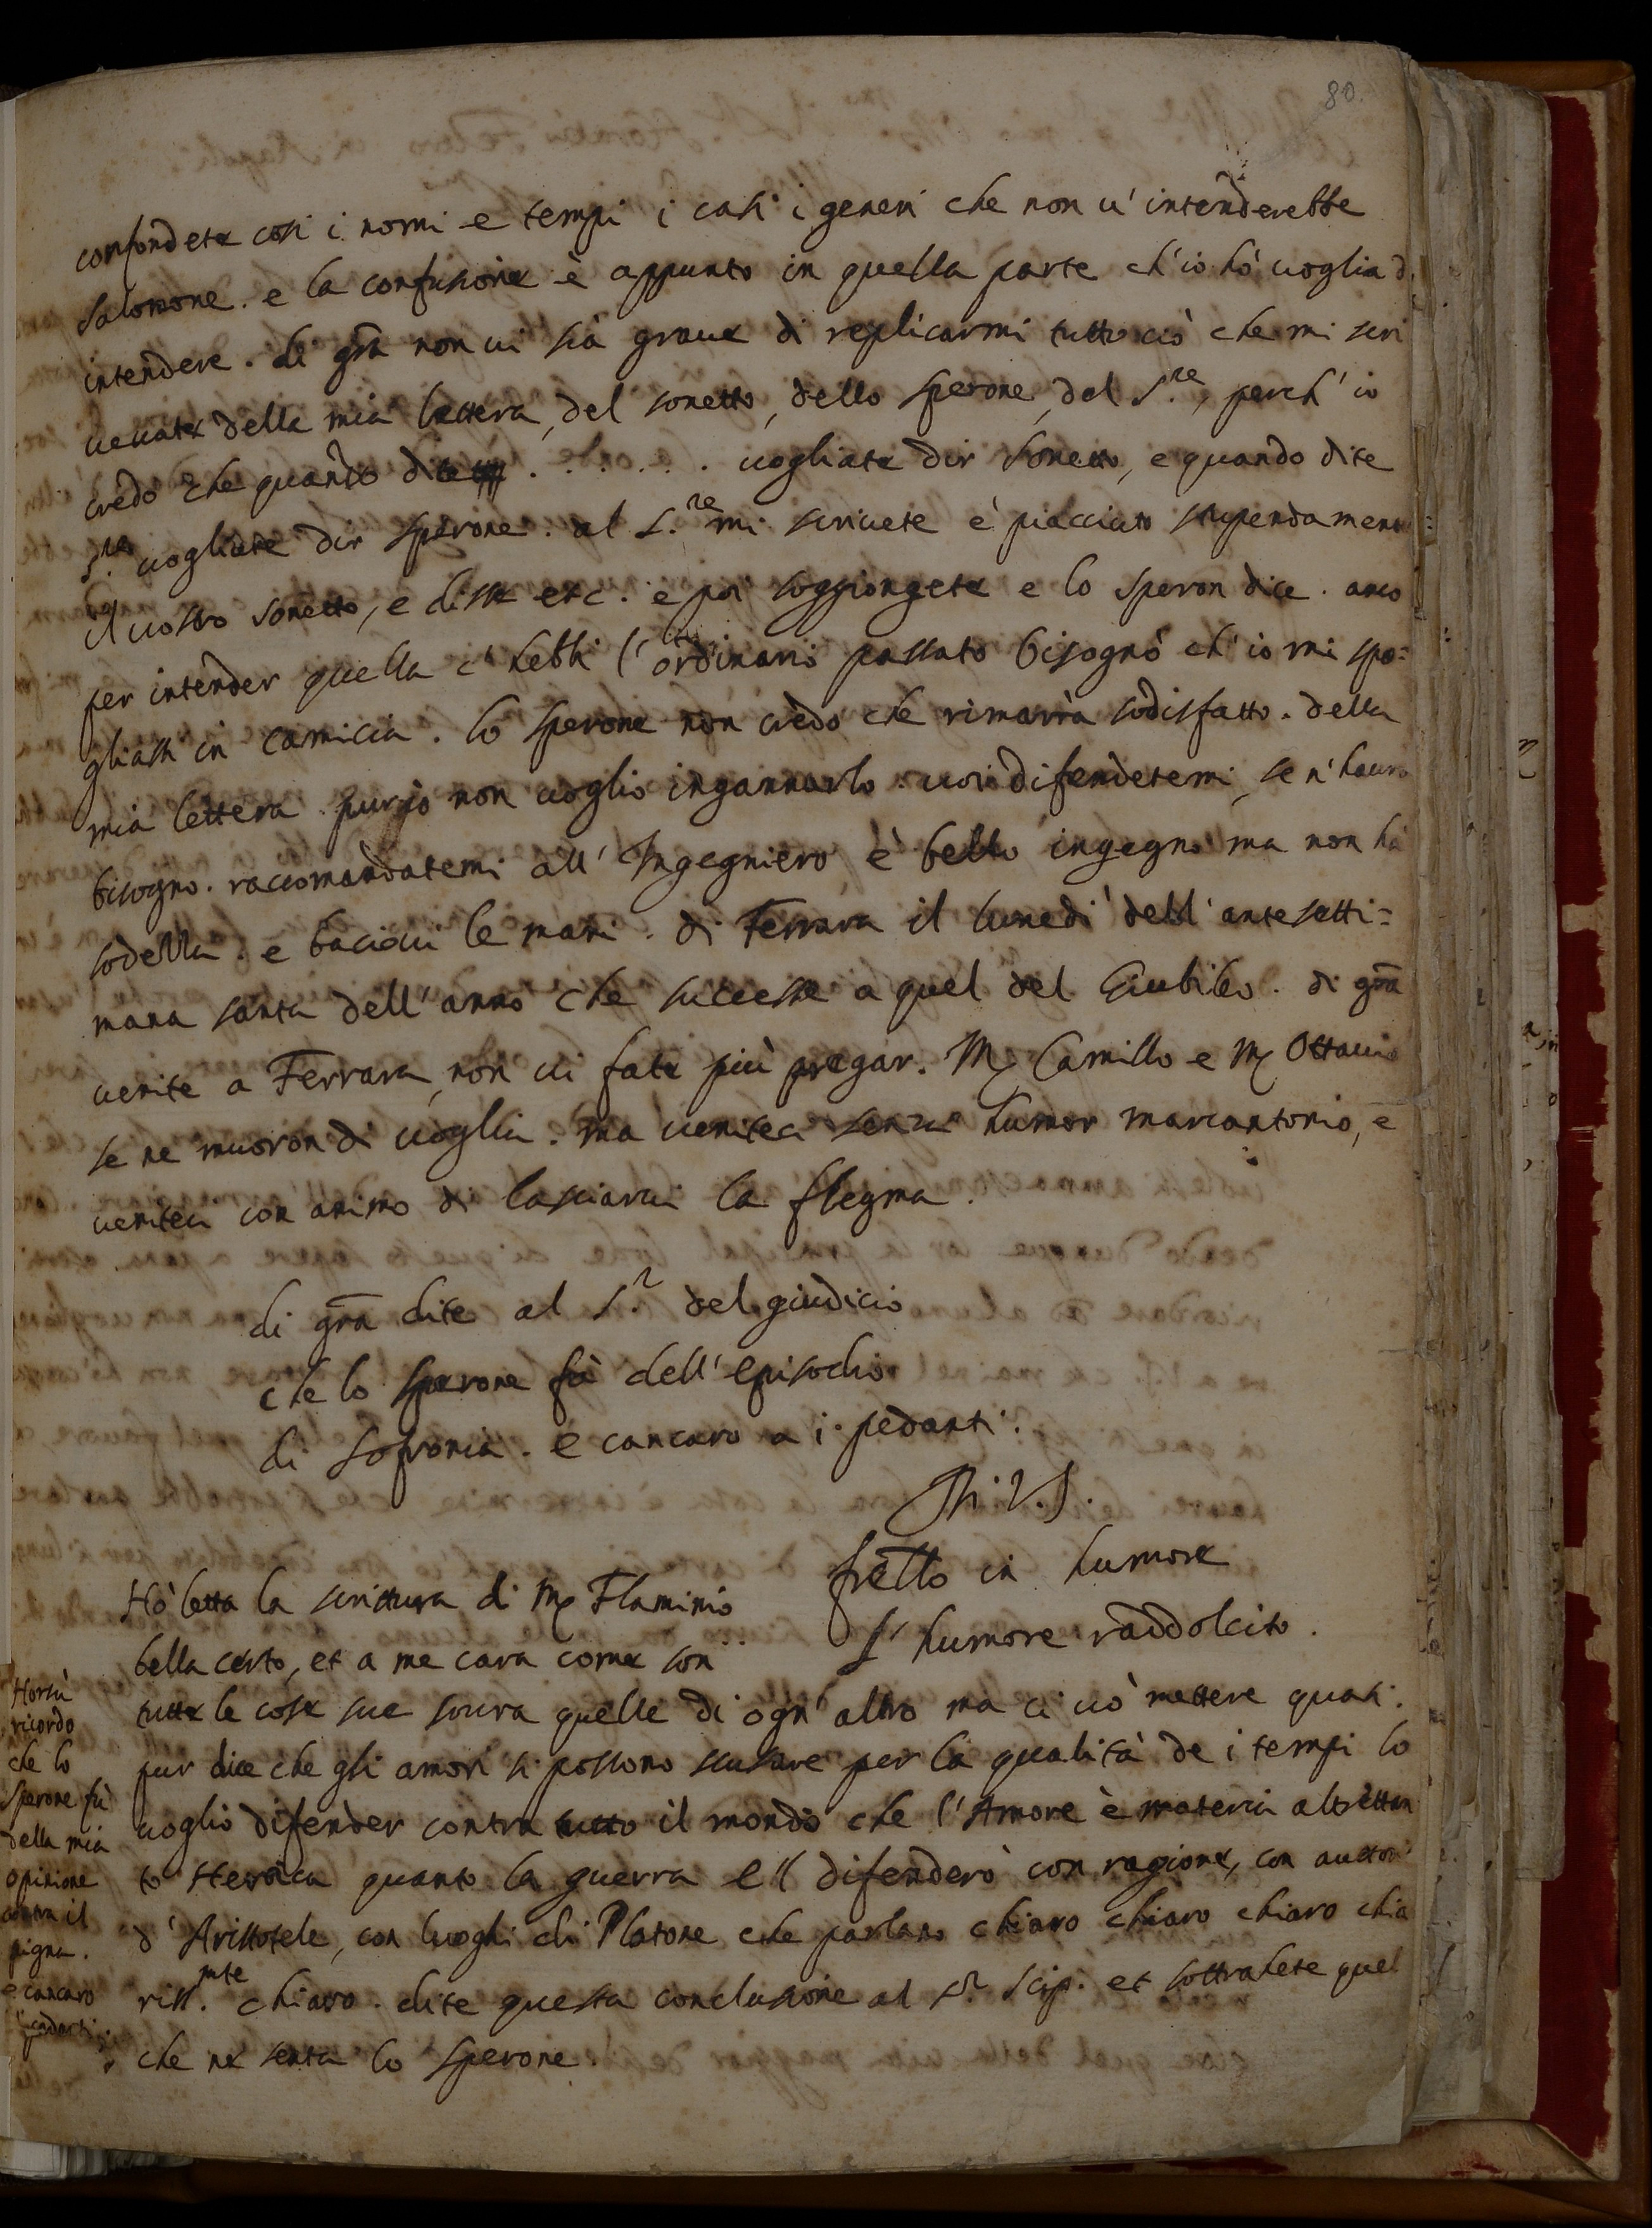 80.
confondete cosi i nomi e tempi i casi i generi che non u' intenderebbe
Salomone. e la confusione è appunto in quella parte ch'io hò uoglia d
intendere. di gra non ui sia graue di replicarmi tutto ciò che mi scri
ueuate della mia lettera, del sonetto, dello sperone, del S.re, perch' io
credo che quando dite . . . . . . uogliate dir sonetto, e quando dite
S.re uogliate dir sperone. al S.re mi scriuete è piacciuto stupendament
il uostro sonetto, e disse etc. e poi soggiongete e lo speron dice. anco
per intender quella c' hebbi l' ordinario passato bisognò ch' io mi spo=
gliassi in camicia. lo sperone non credo che rimarrà sodisfatto. della
mia lettera pur io non uoglio ingannarlo. uoi difendetemi, se n' hauro
bisogno. raccomandatemi all' Ingegniero è bello ingegno ma non hà
sodezza. e bacioui le mani. di Ferrara il lunedi dell' antesetti=
mana santa dell' anno che successe a quel del Giubileo. di gra
uenite a Ferrara, non ui fate più pregar. M. Camillo e M. Ottauio
se ne muoron di uoglia. ma ueniteci senza humor marcantonio, e
ueniteci con animo di lasciarui la flegma.
di gra dite al S.r del giudicio
che lo sperone fà dell' episodio
di Sofronia. e cancaro a i pedanti.
Di V.S.
fratello in humore
L' humore raddolcito.
Hò letta la scrittura di M. Flaminio
bella certo, et a me cara come son
tutte le cose sue soura quelle di ogn' altro ma ci uò mettere quasi.
pur dice che gli amori si possono scusare per la qualità de i tempi Io
uoglio difender contra tutto il mondo che l' Amore è materia altrettan
to Heroica quanto la guerra e 'l difenderò con ragione, con auttori
d' Aristotele, con luoghi di Platone che parlano chiaro chiaro chiaro chia
riss.mte chiaro. dite questa conclusione al S.r Scip. et sottrahete quel
che ne senta lo sperone
Horsù
ricordo
che lo
sperone fù
della mia
opinione
contra il
pigna.
e cancaro